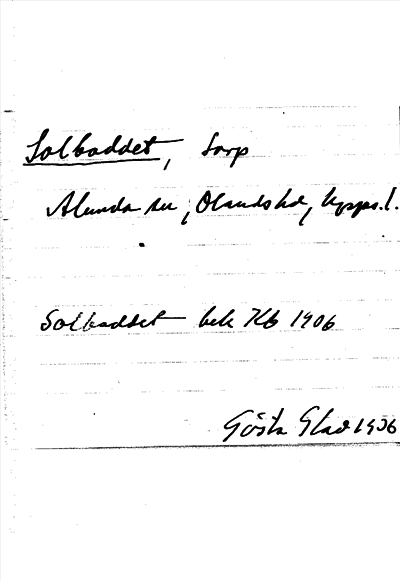 Solbaddet, torp
Alunda sn, Olands hd, Upps. l.
Solbaddet bek Kb 1906
Gösta Glad 1936